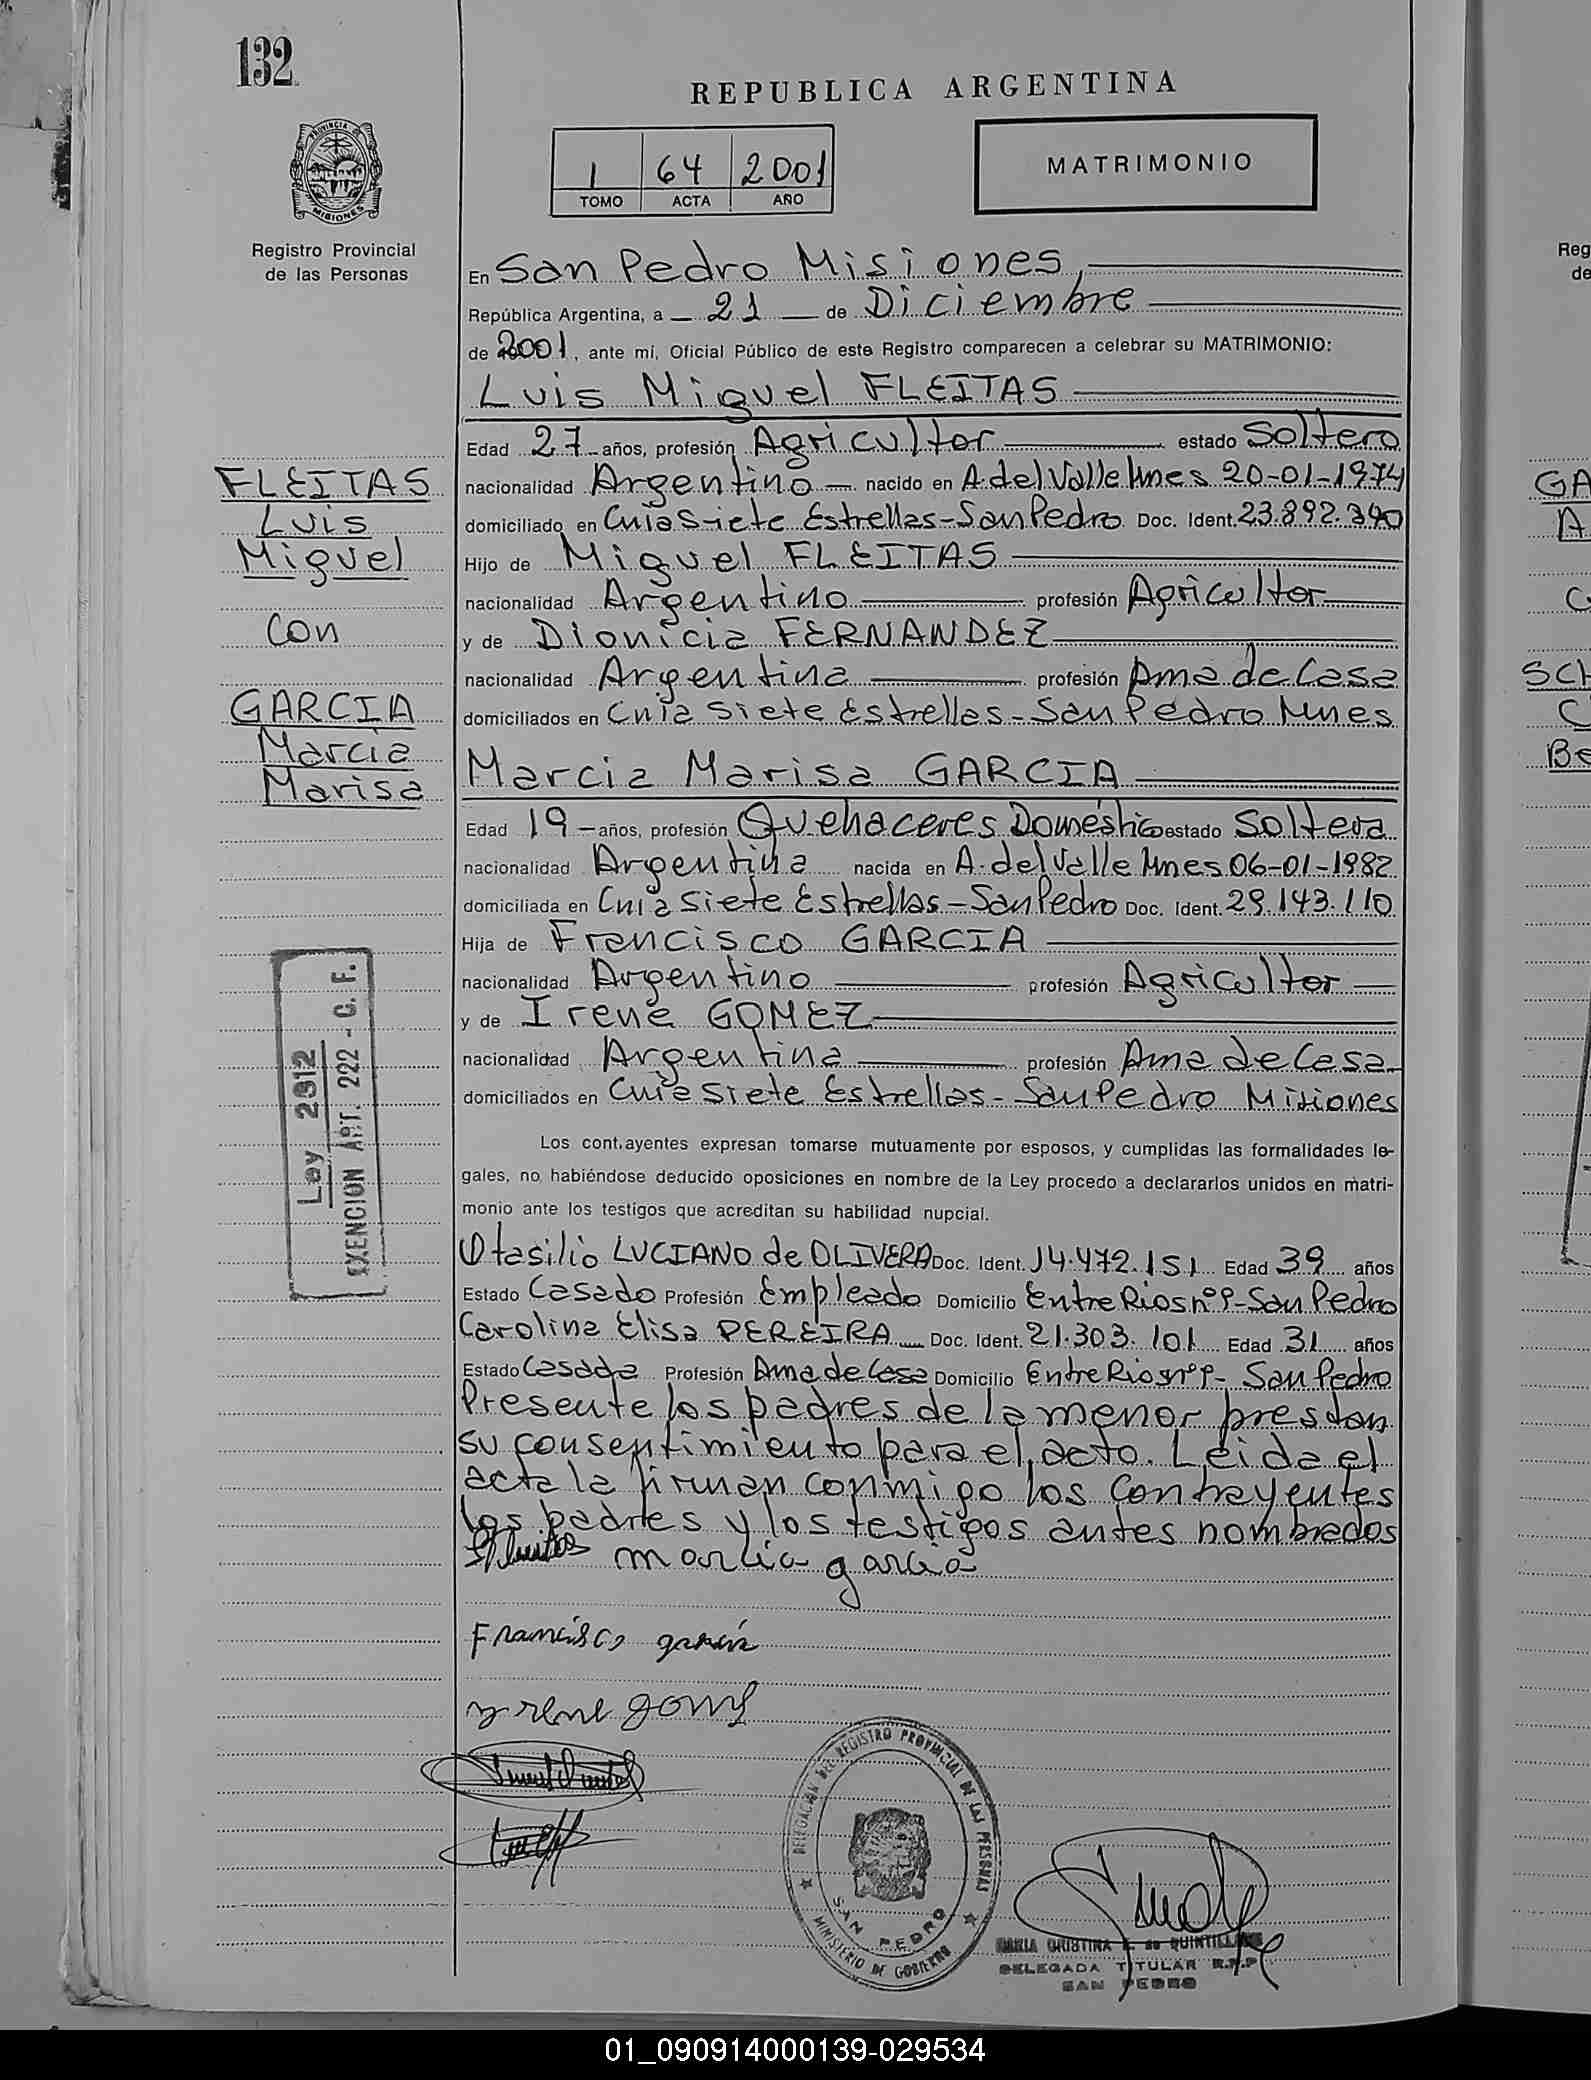 132
REPUBLICA ARGENTINA
PROVINCIA DE MISIONES
Registro Provincial
de las Personas
1 64 2001
TOMO ACTA AÑO
MATRIMONIO
En San Pedro Misiones,
República Argentina, a 21 de Diciembre
de 2001, ante mí, Oficial Público de este Registro comparecen a celebrar su MATRIMONIO:
Luis Miguel FLEITAS
Edad 27 años, profesión Agricultor estado Soltero
nacionalidad Argentino nacido en A. del Valle Mnes 20-01-1974
domiciliado en Cnia Siete Estrellas - San Pedro Doc. Ident. 23.892.390
Hijo de Miguel FLEITAS
nacionalidad Argentino profesión Agricultor
y de Dionicia FERNANDEZ
nacionalidad Argentina profesión Ama de Casa
domiciliados en Cnia Siete Estrellas - San Pedro Mnes
Marcia Marisa GARCIA
Edad 19 - años, profesión Quehaceres Doméstico estado Soltera
nacionalidad Argentina nacida en A. del Valle Mnes 06-01-1982
domiciliada en Cnia Siete Estrellas - San Pedro Doc. Ident. 29.143.110
Hija de Francisco GARCIA
nacionalidad Argentino profesión Agricultor
y de Irene GOMEZ
nacionalidad Argentina profesión Ama de Casa
domiciliados en Cnia Siete Estrellas - San Pedro Misiones
Los contrayentes expresan tomarse mutuamente por esposos, y cumplidas las formalidades le-
gales, no habiéndose deducido oposiciones en nombre de la Ley procedo a declararlos unidos en matri-
monio ante los testigos que acreditan su habilidad nupcial.
Otasilio LUCIANO de OLIVERA Doc. Ident. 14.472.151 Edad 39 años
Estado Casado Profesión Empleado Domicilio Entre Rios nº - San Pedro
Carolina Elisa PEREIRA Doc. Ident. 21.303.101 Edad 31 años
Estado Casada Profesión Ama de Casa Domicilio Entre Rios nº - San Pedro
Presente los padres de la menor prestan
su consentimiento para el acto. Leida el
acta la firman conmigo los Contrayentes
los padres y los testigos antes nombrados
marcia garcia
Francisco garcía
yrene gomez
FLEITAS
Luis
Miguel
con
GARCIA
Marcia
Marisa
Ley 2312
EXENCION ART. 222 - C. F.
DELEGACION DEL REGISTRO PROVINCIAL DE LAS PERSONAS
SAN PEDRO
MINISTERIO DE GOBIERNO
MARIA CRISTINA de QUINTILLAN
DELEGADA TITULAR R.P.P
SAN PEDRO
Reg
de
GA
A
C
SCH
C
Be
01_090914000139-029534